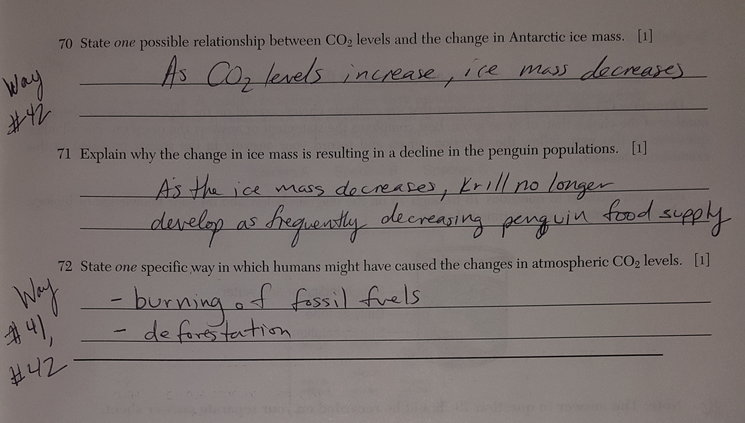 70 State one possible relationship between CO₂ levels and the change in Antarctic ice mass. [1]
Way
#42
As CO₂ levels increase, ice mass decreases
71 Explain why the change in ice mass is resulting in a decline in the penguin populations. [1]
As the ice mass decreases, krill no longer
develop as frequently decreasing penguin food supply
72 State one specific way in which humans might have caused the changes in atmospheric CO₂ levels. [1]
Way
#41,
#42
- burning of fossil fuels
- deforestation